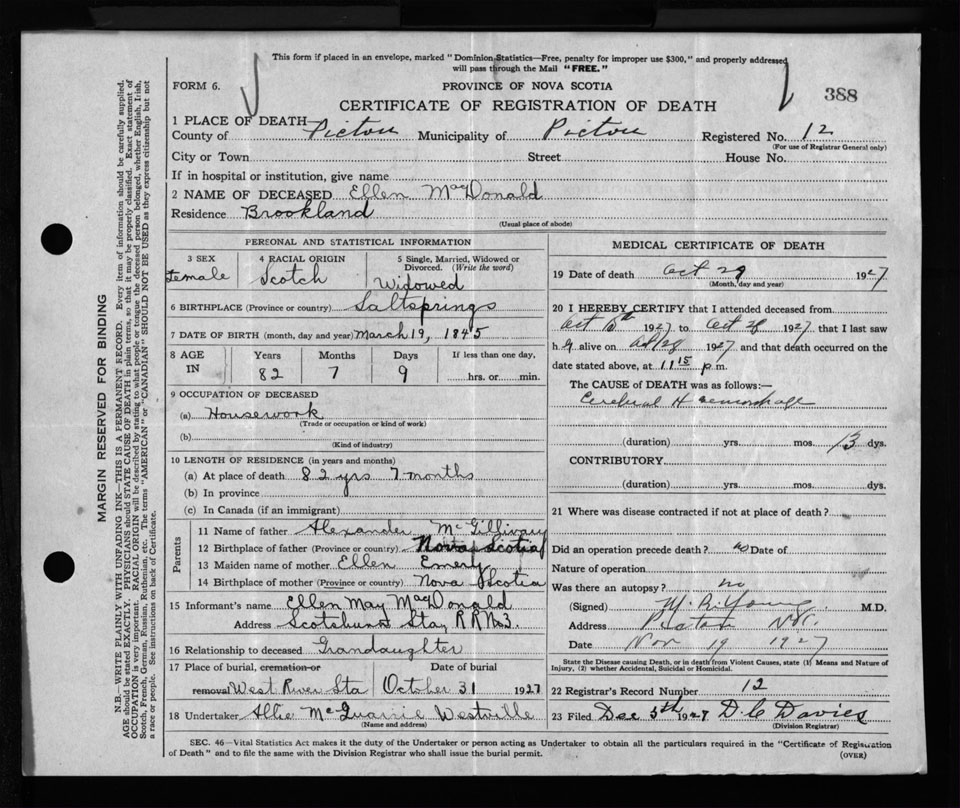 This form if placed in an envelope, marked "Dominion Statistics—Free, penalty for improper use $300," and properly addressed
will pass through the Mail "FREE."
FORM 6.
PROVINCE OF NOVA SCOTIA
388
CERTIFICATE OF REGISTRATION OF DEATH
1 PLACE OF DEATH
County of Pictou Municipality of Pictou Registered No. 12
(For use of Registrar General only)
City or Town Street House No.
If in hospital or institution, give name
2 NAME OF DECEASED Ellen MacDonald
Residence Brookland
(Usual place of abode)
PERSONAL AND STATISTICAL INFORMATION
3 SEX 4 RACIAL ORIGIN 5 Single, Married, Widowed or
Divorced. (Write the word)
Female Scotch Widowed
6 BIRTHPLACE (Province or country) Saltsprings
7 DATE OF BIRTH (month, day and year) March 19, 1845
8 AGE IN Years Months Days If less than one day,
82 7 9 hrs. or min.
9 OCCUPATION OF DECEASED
(a) Housework
(Trade or occupation or kind of work)
(b)
(Kind of industry)
10 LENGTH OF RESIDENCE (in years and months)
(a) At place of death 82 yrs 7 months
(b) In province
(c) In Canada (if an immigrant)
Parents
11 Name of father Alexander McGillivary
12 Birthplace of father (Province or country) Nova Scotia
13 Maiden name of mother Ellen
14 Birthplace of mother (Province or country) Nova Scotia
15 Informant's name Ellen May MacDonald
Address Scotsburn Sta, R R No 3.
16 Relationship to deceased Grandaughter
17 Place of burial, cremation or Date of burial
removal West River Sta October 31 1927
18 Undertaker Allie McQuarrie Westville
(Name and address)
MEDICAL CERTIFICATE OF DEATH
19 Date of death Oct 29 1927
(Month, day and year)
20 I HEREBY CERTIFY that I attended deceased from
Oct 1927 to Oct 28 1927, that I last saw
h alive on 1927 and that death occurred on the
date stated above, at 11 15 p.m.
The CAUSE of DEATH was as follows:—
Cerebral Hemorrhage
(duration) yrs. mos. 13 dys.
CONTRIBUTORY
(duration) yrs. mos. dys.
21 Where was disease contracted if not at place of death?
Did an operation precede death? no Date of
Nature of operation
Was there an autopsy? no
(Signed) Young M.D.
Address Pictou N.S.
Date Nov 19 1927
State the Disease causing Death, or in death from Violent Causes, state (1) Means and Nature of
Injury, (2) whether Accidental, Suicidal or Homicidal.
22 Registrar's Record Number 12
23 Filed Dec 5th 1927 D. C. Davies
(Division Registrar)
SEC. 46—Vital Statistics Act makes it the duty of the Undertaker or person acting as Undertaker to obtain all the particulars required in the "Certificate of Registration
of Death" and to file the same with the Division Registrar who shall issue the burial permit.
(OVER)
MARGIN RESERVED FOR BINDING
N.B.—WRITE PLAINLY WITH UNFADING INK—THIS IS A PERMANENT RECORD. Every item of information should be carefully supplied.
AGE should be stated EXACTLY. PHYSICIANS should STATE CAUSE OF DEATH in plain terms, so that it may be properly classified. Exact statement of
OCCUPATION is very important. RACIAL ORIGIN will be described by stating to what people or tongue the deceased person belonged, whether English, Irish,
Scotch, French, German, Russian, Ruthenian, etc. The terms "AMERICAN" or "CANADIAN" SHOULD NOT BE USED as they express citizenship but not
a race or people. See instructions on back of Certificate.